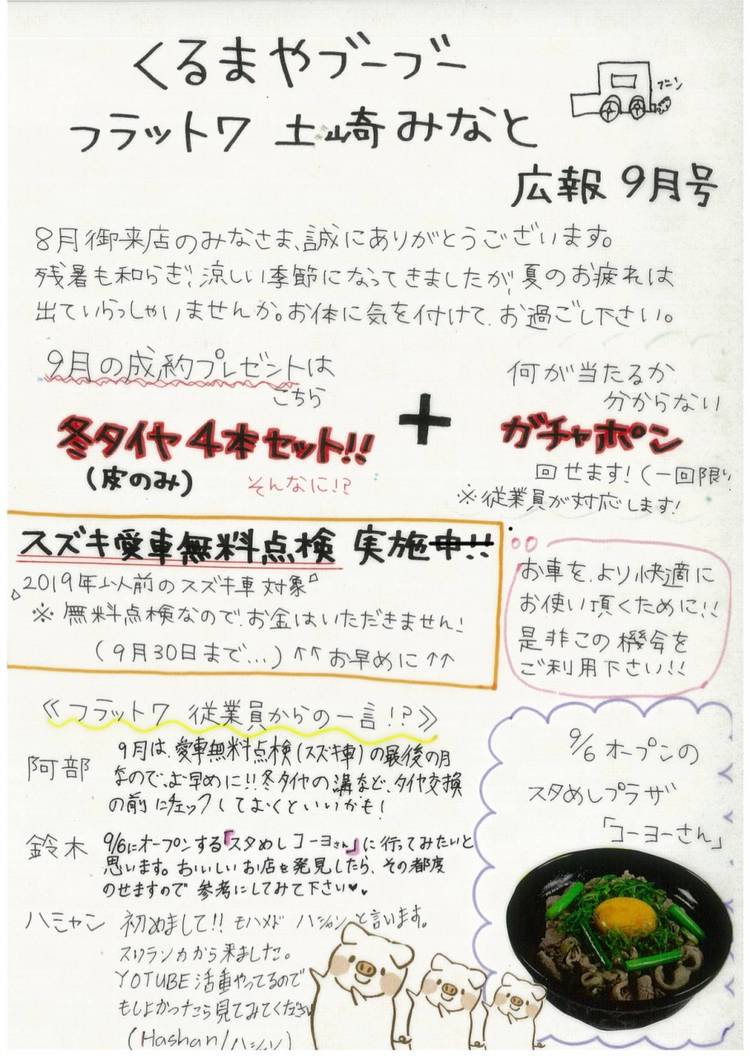 くるまやブーブー
フラット7 土崎みなと
ブーン
広報 9月号
8月御来店のみなさま、誠にありがとうございます。
残暑も和らぎ、涼しい季節になってきましたが、夏のお疲れは
出ていらっしゃいませんか。お体に気を付けて、お過ごし下さい。
9月の成約プレゼントは
こちら
冬タイヤ4本セット!!
(皮のみ)
そんなに!?
+
何が当たるか
分からない
ガチャポン
回せます!(一回限り
※従業員が対応します!
スズキ愛車無料点検 実施中!!
2019年以前のスズキ車対象
※無料点検なので、お金はいただきません!
(9月30日まで…)↑↑お早めに↑↑
お車を、より快適に
お使い頂くために!!
是非この機会を
ご利用下さい!!
《フラット7 従業員からの一言!?》
阿部
9月は、愛車無料点検(スズキ車)の最後の月
なので、お早めに!!冬タイヤの溝など、タイヤ交換
の前にチェックしておくといいかも!
鈴木
9/6にオープンする「スタめしコーヨーさん」に行ってみたいと
思います。おいしいお店を発見したら、その都度
のせますので参考にしてみて下さい♥♥
ハミャン
初めまして!! モハメド ハシャンと言います。
スリランカから来ました。
YOTUBE活動やってるので
もしよかったら見てみてください
(Hashan/ハシャン)
9/6オープンの
スタめしプラザ
「コーヨーさん」